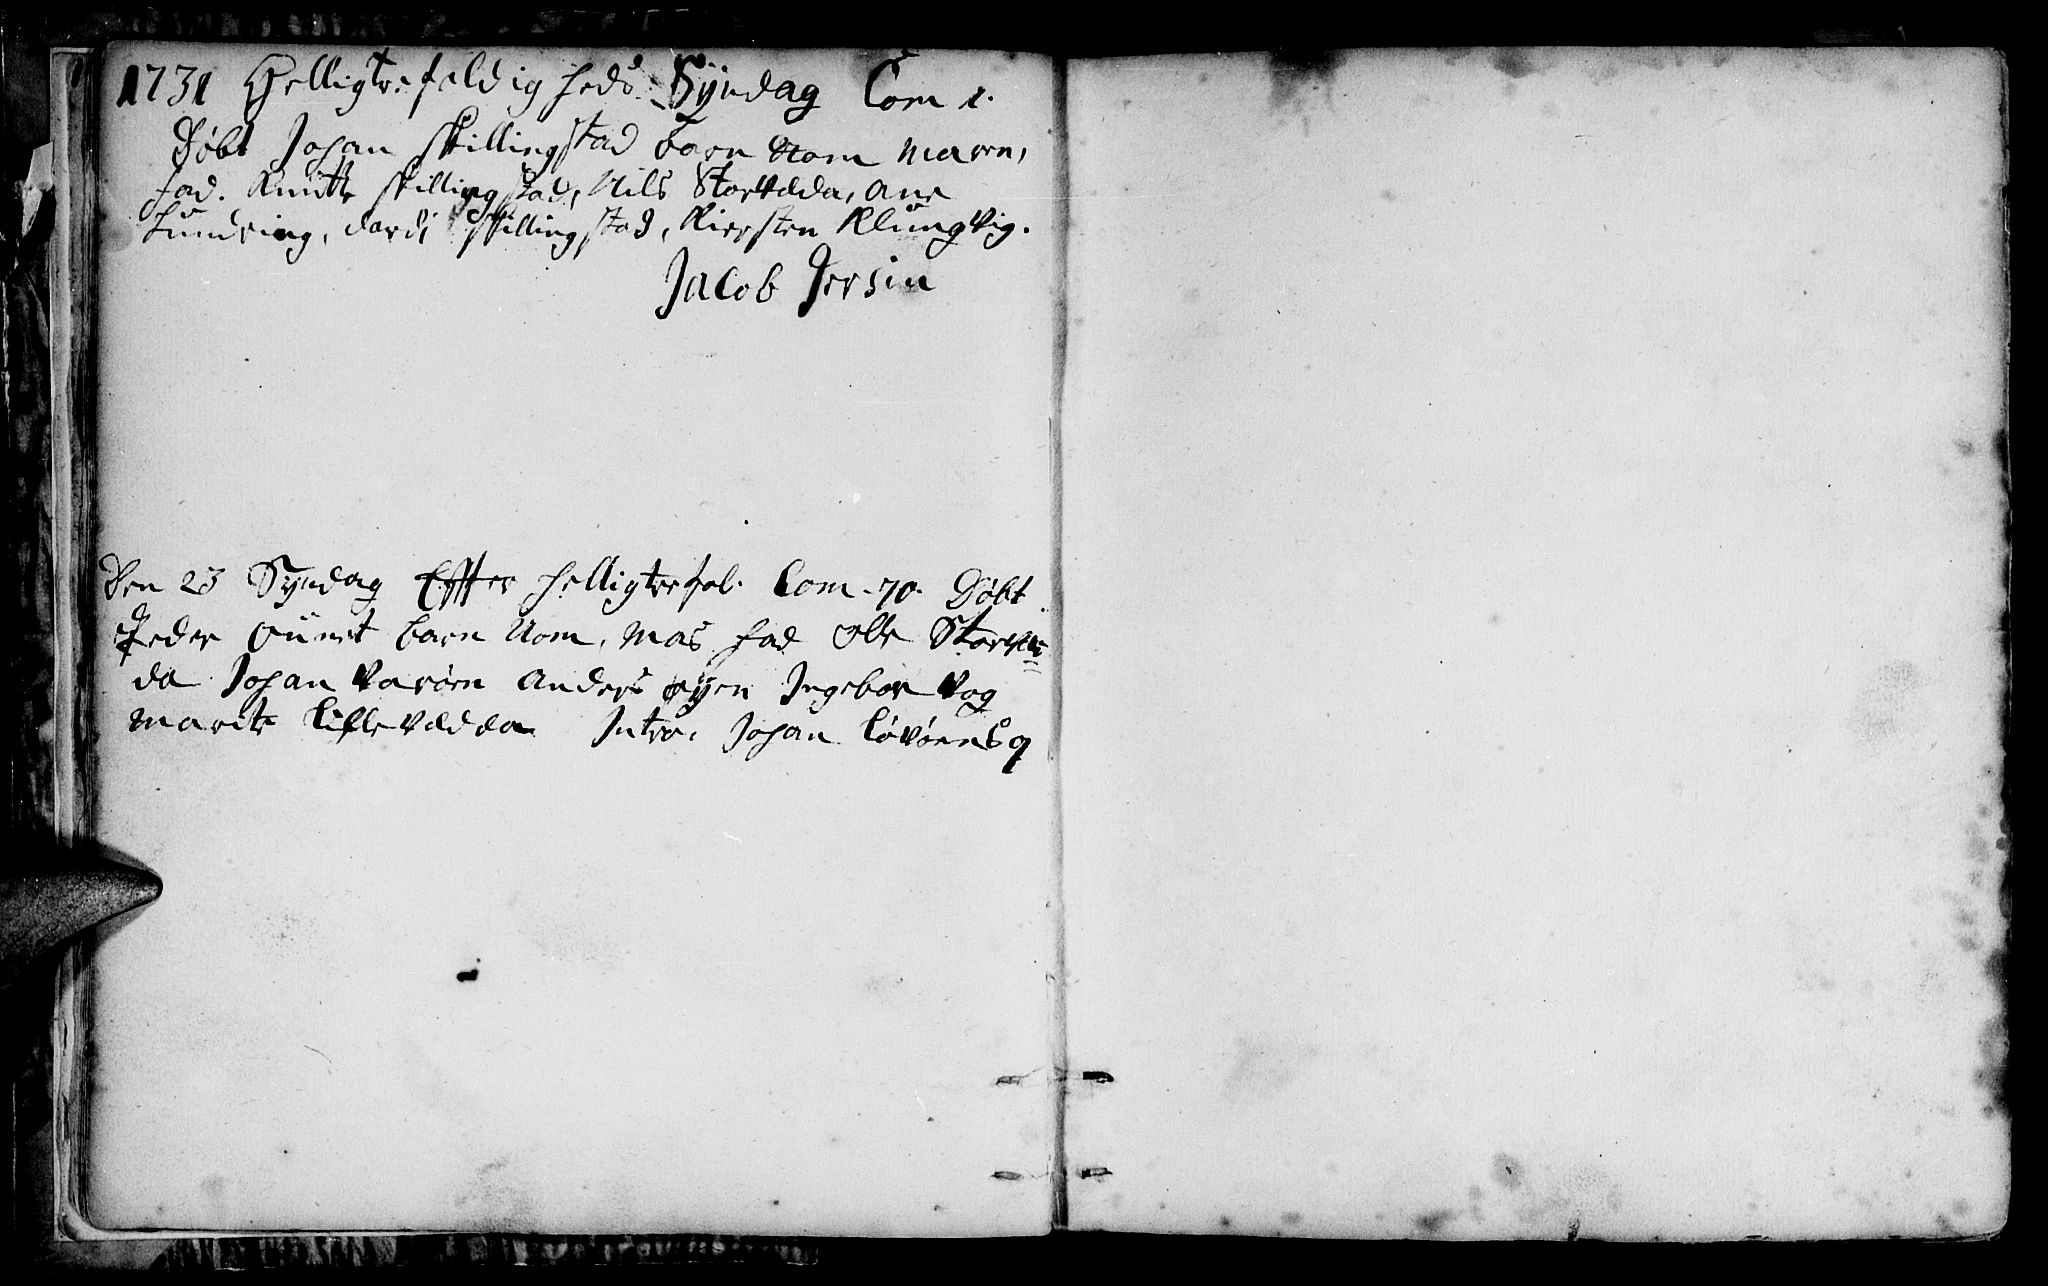 1731 Helligtrefoldigheds Syndag Com 1.
Døbt Johan Skillingstad barn Nom Maren,
fad. Knutt Skillingstad, Nils Storvædda, Ane
Lundring, dordi Skillingstad, Kiersten Klungvig.
Jacob Jersin
Den 23 Syndag Efter helligtrefol. Com. 70. Døbt
Peder barn Nom, Mas fad Olle Storvæ=
da Johan Varøen Anders øyen Ingebor Vog
Marit Lillevædda Intro. Johan Løvøens q